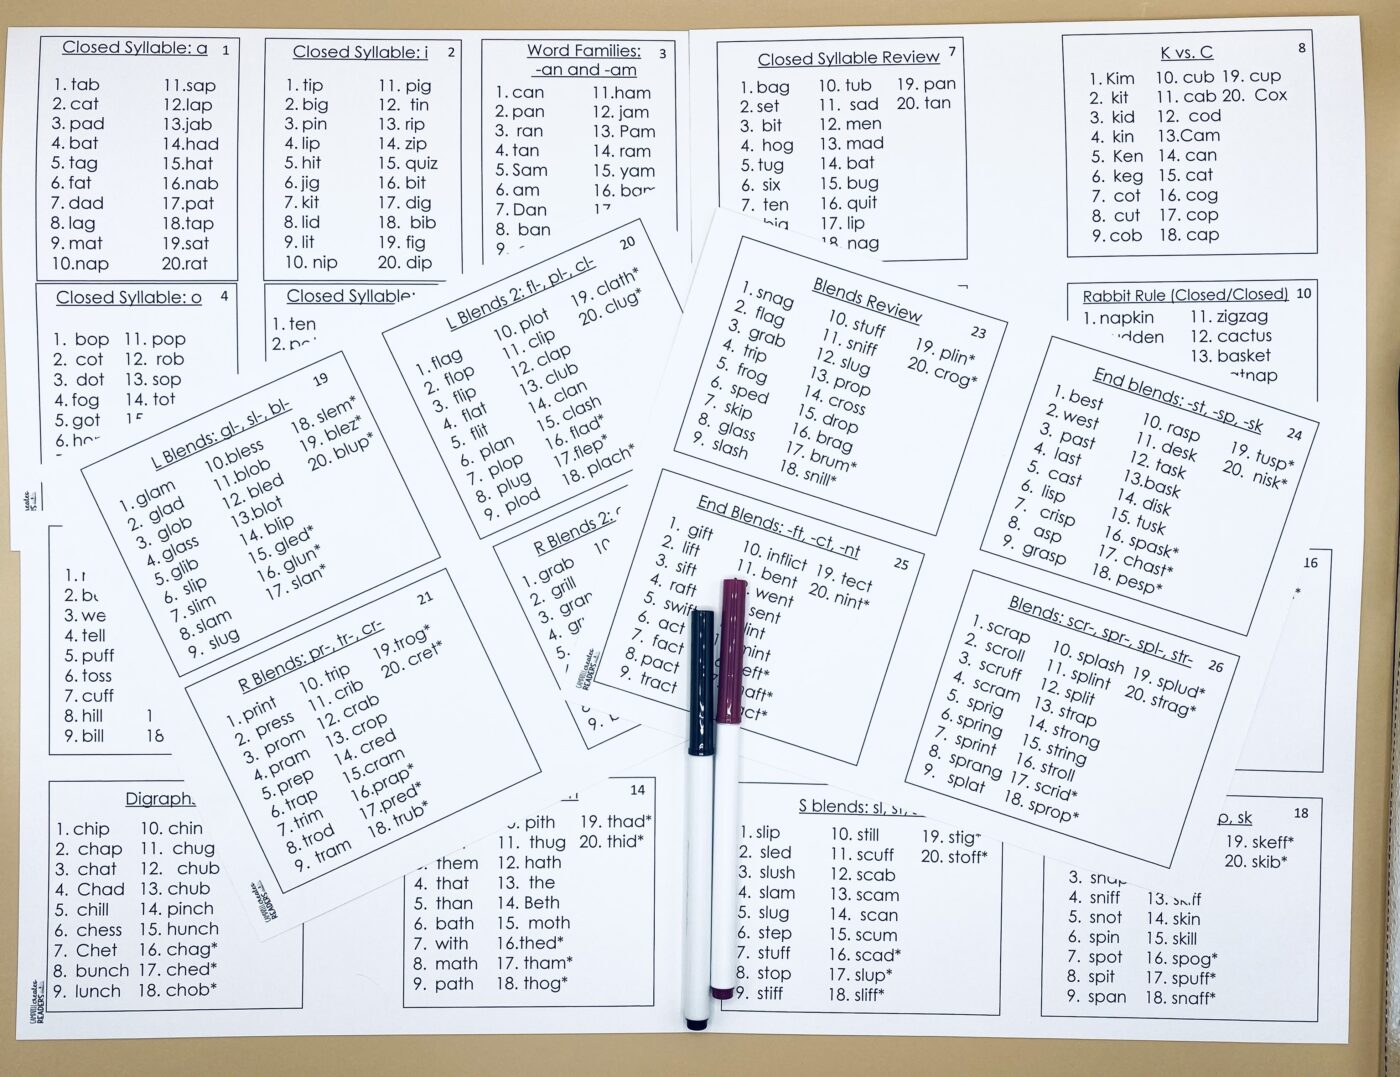 Closed Syllable: a 1
1. tab 11.sap
2. cat 12.lap
3. pad 13.jab
4. bat 14.had
5. tag 15.hat
6. fat 16.nab
7. dad 17.pat
8. lag 18.tap
9. mat 19.sat
10.nap 20.rat
Closed Syllable: i 2
1. tip 11. pig
2. big 12. tin
3. pin 13. rip
4. lip 14. zip
5. hit 15. quiz
6. jig 16. bit
7. kit 17. dig
8. lid 18. bib
9. lit 19. fig
10. nip 20. dip
Word Families: 3
-an and -am
1. can 11.ham
2. pan 12. jam
3. ran 13. Pam
4. tan 14. ram
5. Sam 15. yam
6. am 16.
7. Dan 17.
8. ban
9.
Closed Syllable Review 7
1. bag 10. tub 19. pan
2. set 11. sad 20. tan
3. bit 12. men
4. hog 13. mad
5. tug 14. bat
6. six 15. bug
7. ten 16. quit
17. lip
18. nag
K vs. C 8
1. Kim 10. cub 19. cup
2. kit 11. cab 20. Cox
3. kid 12. cod
4. kin 13.Cam
5. Ken 14. can
6. keg 15. cat
7. cot 16. cog
8. cut 17. cop
9. cob 18. cap
Closed Syllable: o 4
1. bop 11. pop
2. cot 12. rob
3. dot 13. sop
4. fog 14. tot
5. got
6.
Closed Syllable:
1. ten
2.
Rabbit Rule (Closed/Closed) 10
1. napkin 11. zigzag
12. cactus
13. basket
L Blends: gl-, sl-, bl- 19
1. glam 10.bless 18. slem*
2. glad 11.blob 19. blez*
3. glob 12. bled 20. blup*
4. glass 13.blot
5. glib 14. blip
6. slip 15. gled*
7. slim 16. glun*
8. slam 17. slan*
9. slug
L Blends 2: fl-, pl-, cl- 20
1. flag 10. plot 19. clath*
2. flop 11. clip 20. clug*
3. flip 12. clap
4. flat 13. club
5. flit 14. clan
6. plan 15. clash
7. plop 16. flad*
8. plug 17.flep*
9. plod 18. plach*
Blends Review 23
1. snag 10. stuff 19. plin*
2. flag 11. sniff 20. crog*
3. grab 12. slug
4. trip 13. prop
5. frog 14. cross
6. sped 15. drop
7. skip 16. brag
8. glass 17. brum*
9. slash 18. snill*
End blends: -st, -sp, -sk 24
1. best 10. rasp 19. tusp*
2. west 11. desk 20. nisk*
3. past 12. task
4. last 13.bask
5. cast 14. disk
6. lisp 15. tusk
7. crisp 16. spask*
8. asp 17. chast*
9. grasp 18. pesp*
R Blends: pr-, tr-, cr- 21
1. print 10. trip 19.trog*
2. press 11. crib 20. cret*
3. prom 12. crab
4. pram 13. crop
5. prep 14. cred
6. trap 15.cram
7. trim 16.prap*
8. trod 17.pred*
9. tram 18. trub*
R Blends 2:
1. grab 10
2. grill
3.
4.
5.
9.
End Blends: -ft, -ct, -nt 25
1. gift 10. inflict 19. tect
2. lift 11. bent 20. nint*
3. sift went
4. raft sent
5. swift
6. act
7. fact
8. pact
9. tract
Blends: scr-, spr-, spl-, str- 26
1. scrap 10. splash 19. splud*
2. scroll 11. splint 20. strag*
3. scruff 12. split
4. scram 13. strap
5. sprig 14. strong
6. spring 15. string
7. sprint 16. stroll
8. sprang 17. scrid*
9. splat 18. sprop*
1.
2.
3. we
4. tell
5. puff
6. toss
7. cuff
8. hill 1
9. bill 18
16
Digraph
1. chip 10. chin
2. chap 11. chug
3. chat 12. chub
4. Chad 13. chub
5. chill 14. pinch
6. chess 15. hunch
7. Chet 16. chag*
8. bunch 17. ched*
9. lunch 18. chob*
14
pith 19. thad*
11. thug 20. thid*
them 12. hath
4. that 13. the
5. than 14. Beth
6. bath 15. moth
7. with 16.thed*
8. math 17. tham*
9. path 18. thog*
S blends: sl, st,
1. slip 10. still 19. stig*
2. sled 11. scuff 20. stoff*
3. slush 12. scab
4. slam 13. scam
5. slug 14. scan
6. step 15. scum
7. stuff 16. scad*
8. stop 17. slup*
9. stiff 18. sliff*
p, sk 18
19. skeff*
20. skib*
3.
4. sniff 13.
5. snot 14. skin
6. spin 15. skill
7. spot 16. spog*
8. spit 17. spuff*
9. span 18. snaff*
CAMPBELL creates
READERS
CAMPBELL creates
READERS
CAMPBELL creates
READERS